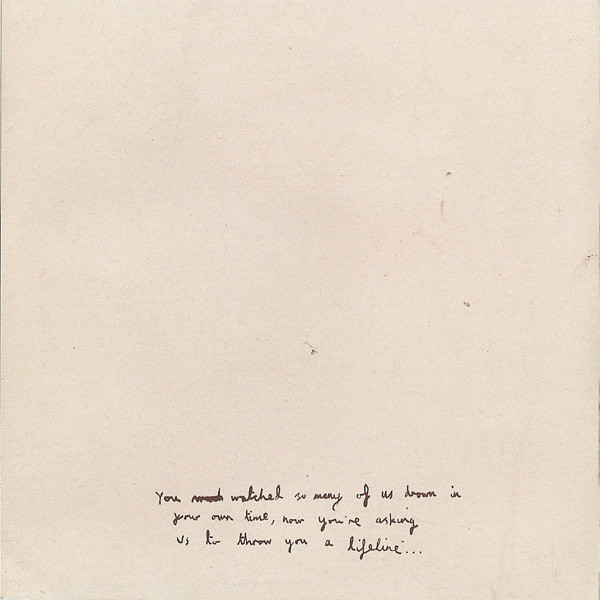 You watched so many of us drown in
your own time, now you're asking
us to throw you a lifeline...